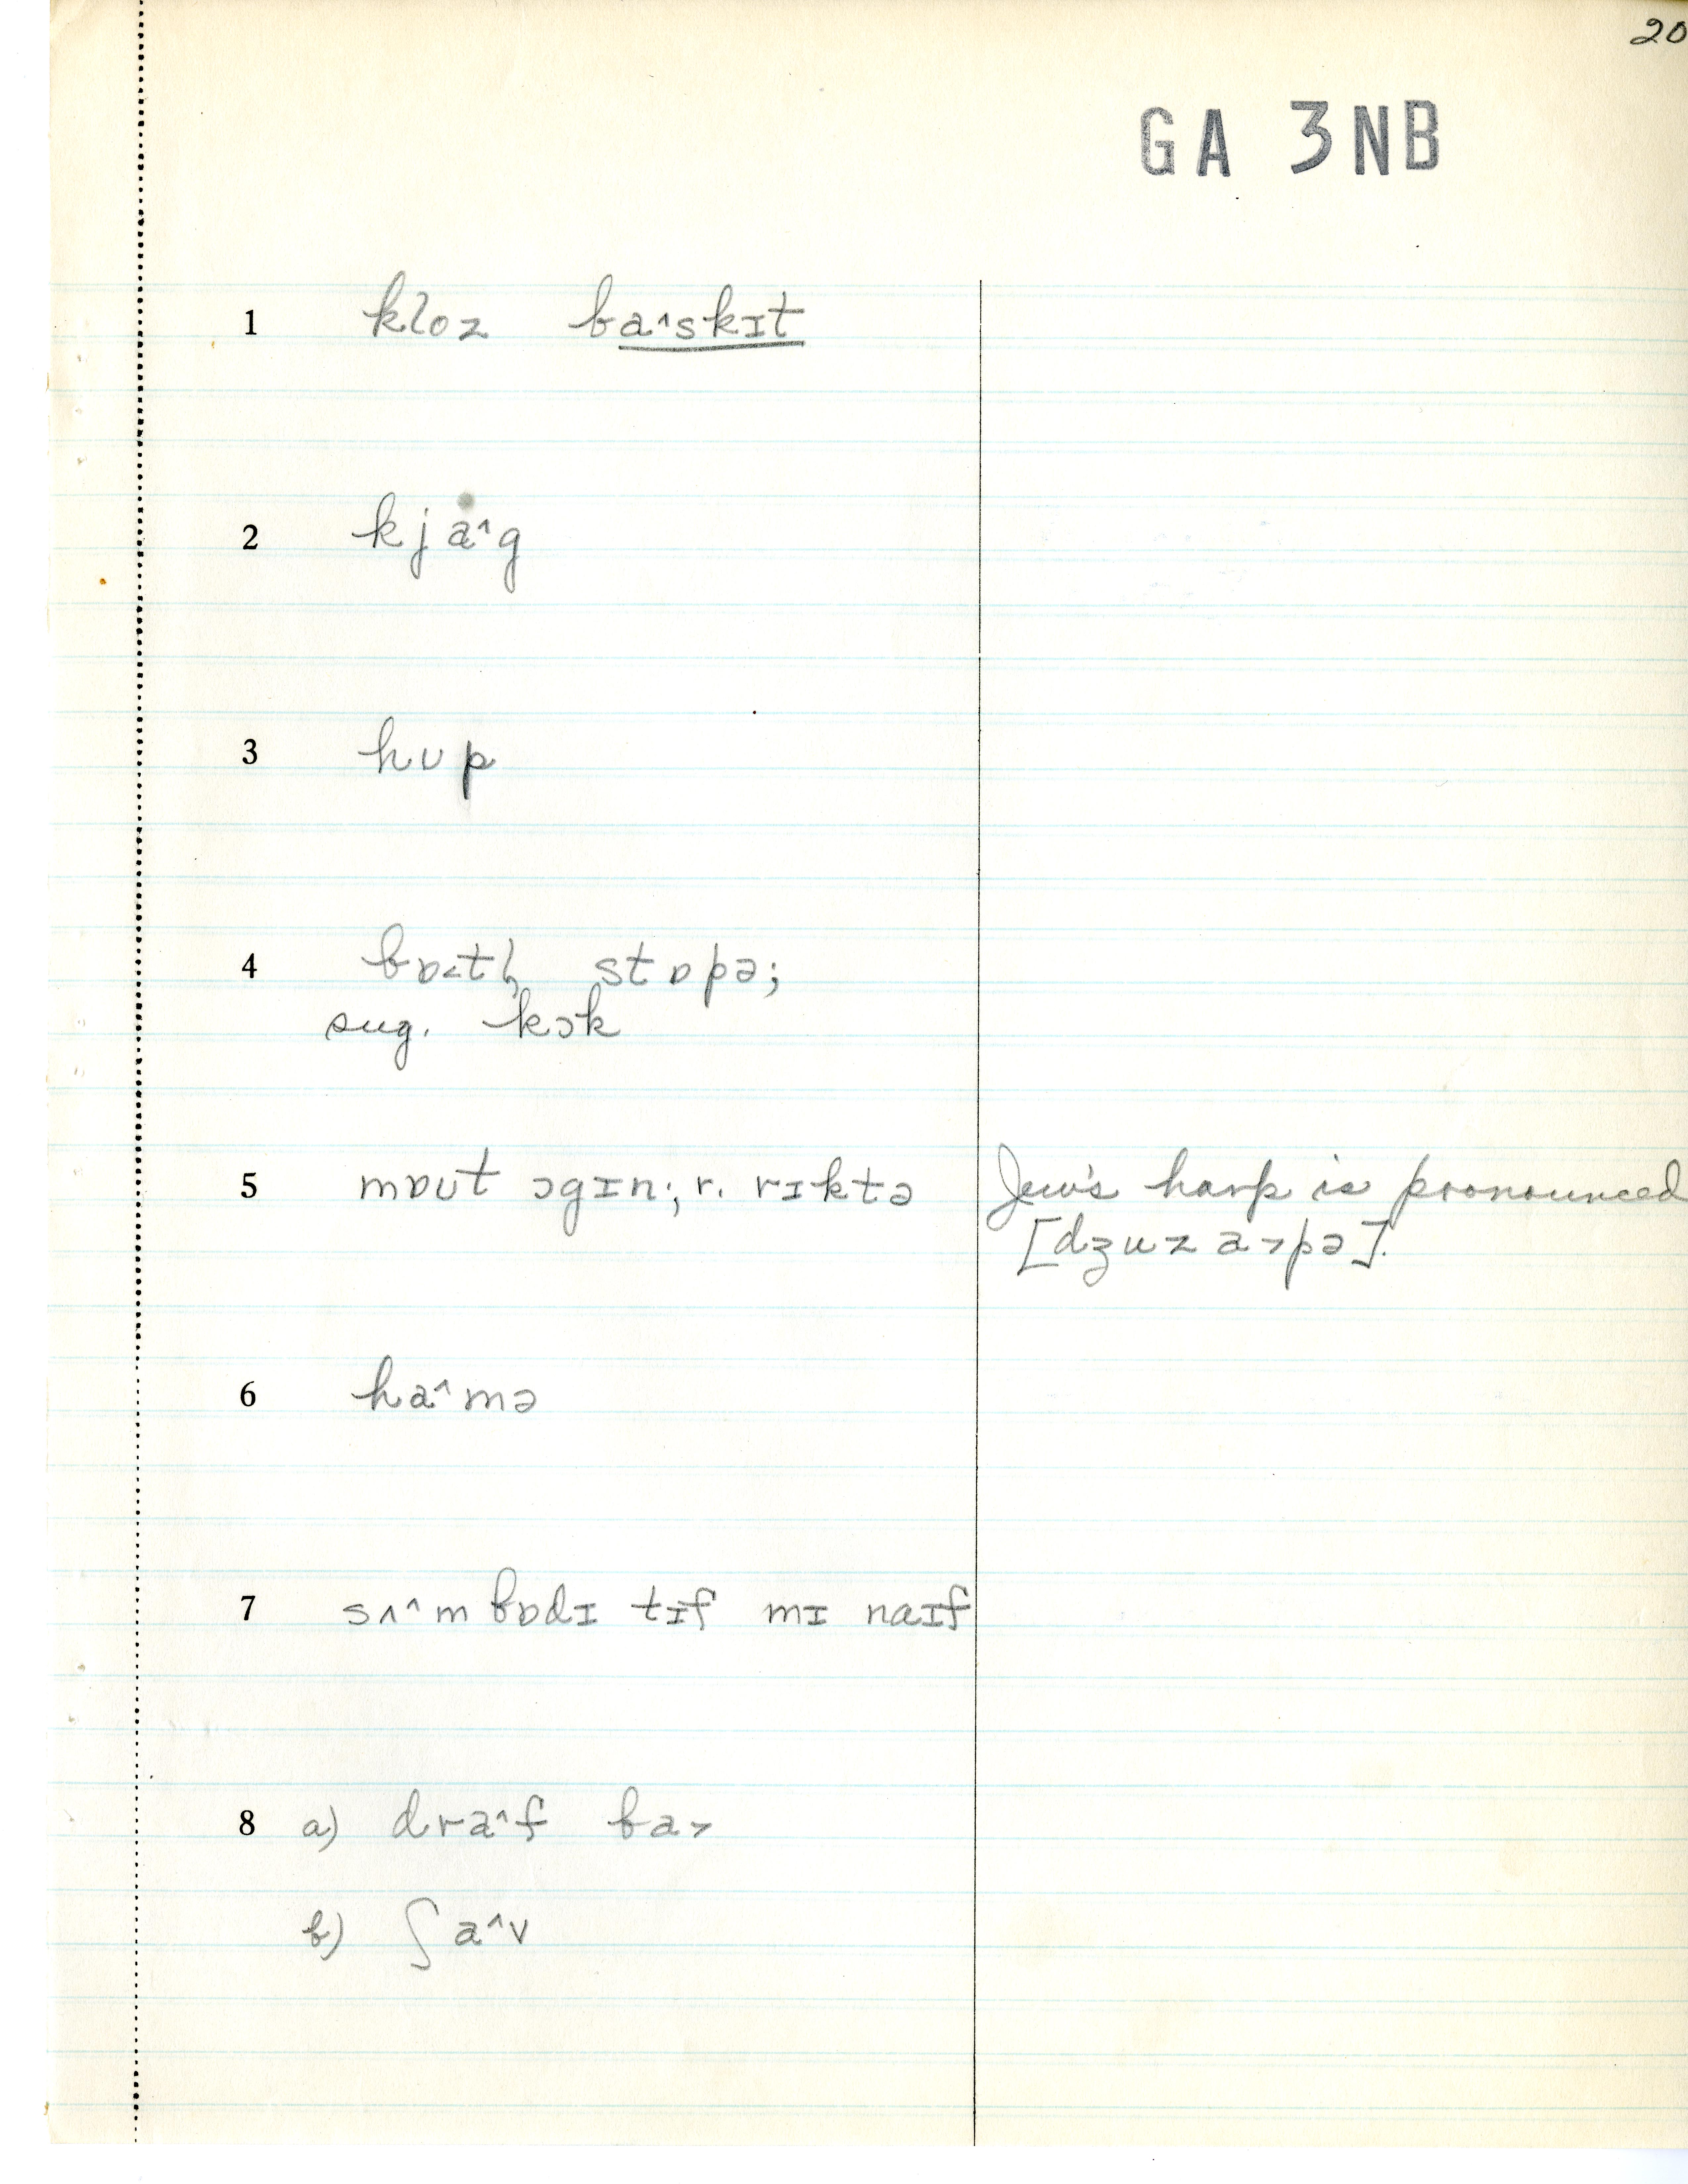 20
GA 3NB
1 kloz ba^skɪt
2 kja^g
3 hʊp
4 bɒ˂tḷ stɒpə;
sug. kɔk
5 mɒʊt ɔgɪn; r. rɪktə Jew's harp is pronounced
[dʒuz a˃pə].
6 ha^mə
7 sʌ^mbɒdɪ tɪf mɪ naɪf
8 a) dra^f ba˃
b) ʃa^v